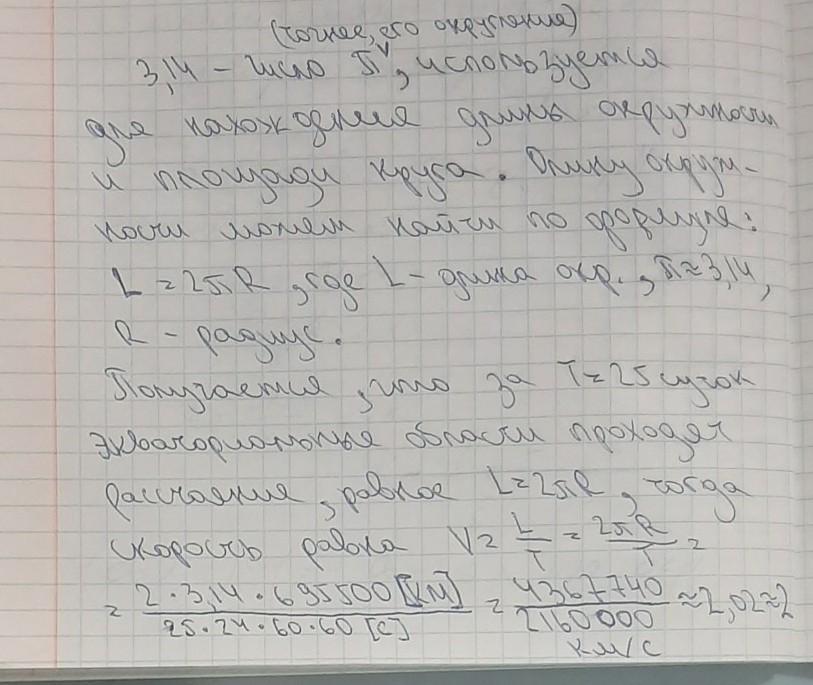 (точнее, его округления)
3,14 – число π, используется
для нахождения длины окружности
и площади круга. Длину окруж-
ности можем найти по формуле:
L = 2πR, где L – длина окр., π ≈ 3,14,
R – радиус.
Получается, что за T = 25 суток
экваториальные области проходят
расстояние, равное L = 2πR, тогда
скорость равна V = L/T = 2πR/T =
= 2 · 3,14 · 695500 [км] / 25 · 24 · 60 · 60 [с] = 4367740 / 2160000 ≈ 2,02 ≈ 2
км/с